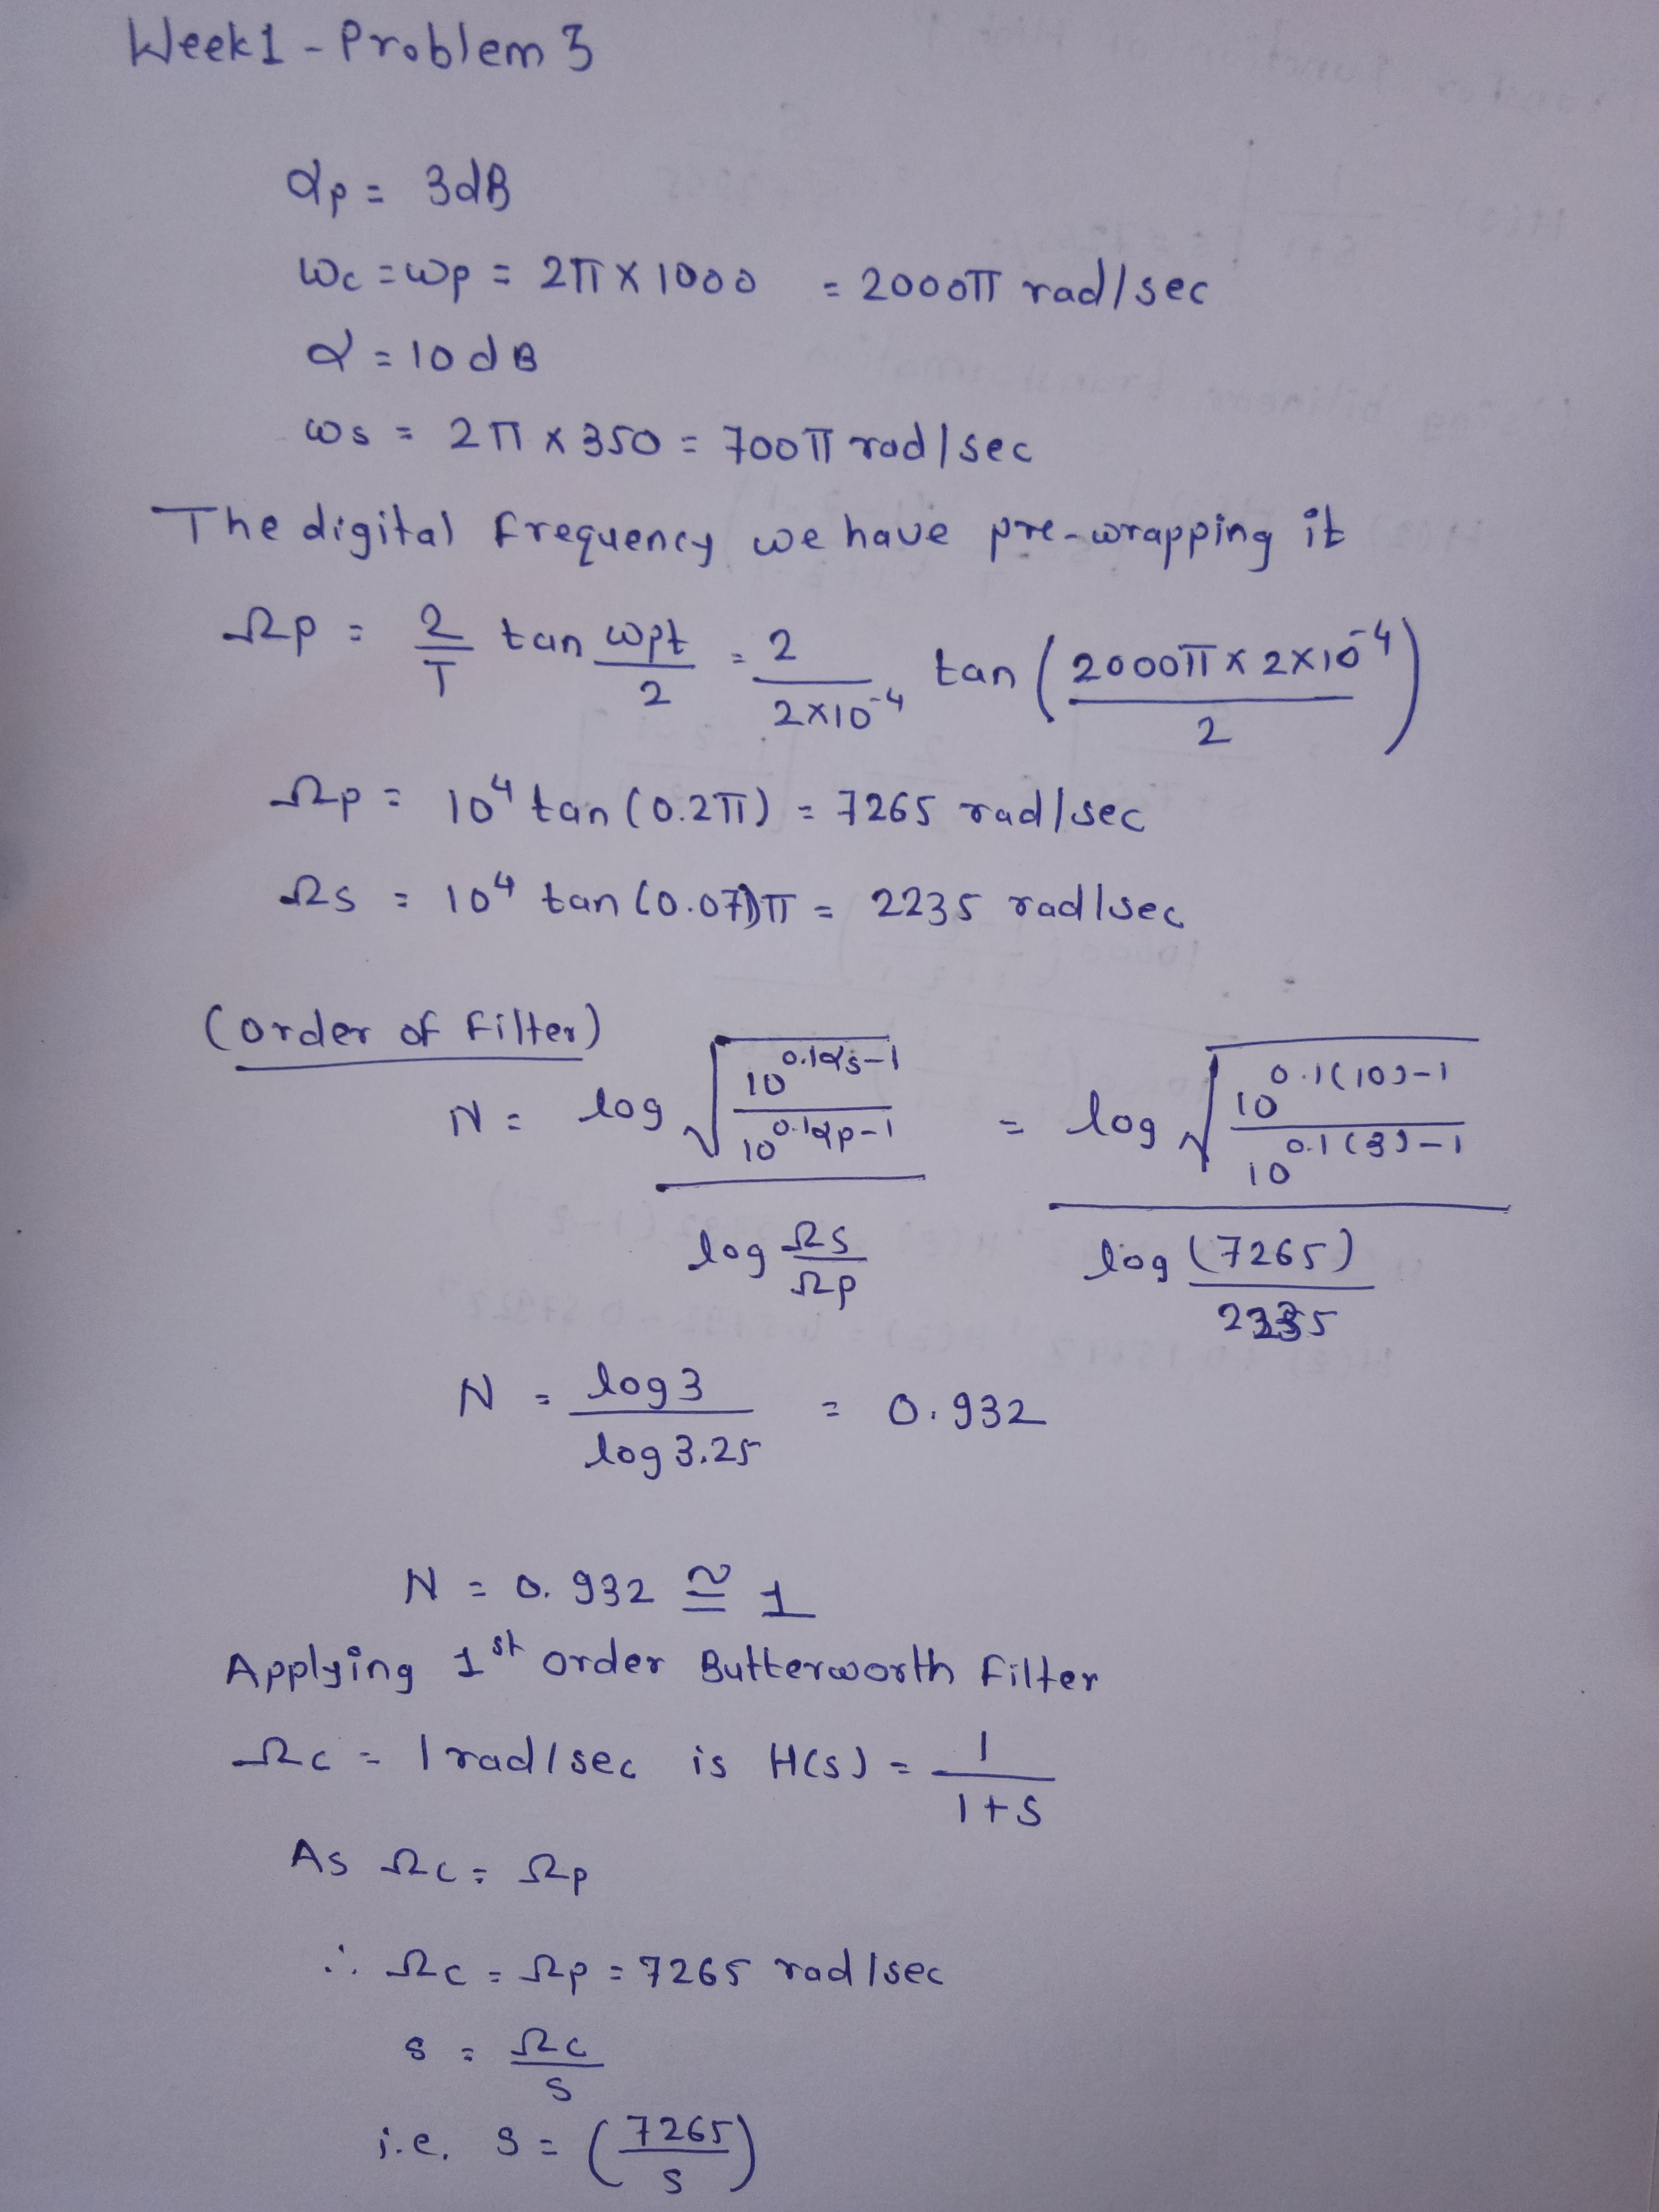 Week1 - Problem 3
αp = 3dB
ωc = ωp = 2π × 1000 = 2000π rad/sec
α = 10dB
ωs = 2π × 350 = 700π rad/sec
The digital frequency we have pre-wrapping it
Ωp = 2/T tan ωpt/2 = 2/(2×10^-4) tan (2000π × 2×10^-4 / 2)
Ωp = 10^4 tan (0.2π) = 7265 rad/sec
Ωs = 10^4 tan (0.07)π = 2235 rad/sec
(Order of Filter)
N = log √(10^0.1αs-1 / 10^0.1αp-1) / log Ωs/Ωp = log √(10^0.1(10)-1 / 10^0.1(3)-1) / log (7265)/2235
N = log3 / log3.25 = 0.932
N = 0.932 ≅ 1
Applying 1st order Butterworth Filter
Ωc = 1 rad/sec is H(s) = 1/1+S
As Ωc = Ωp
∴ Ωc = Ωp = 7265 rad/sec
s = Ωc/s
i.e. s = (7265/s)